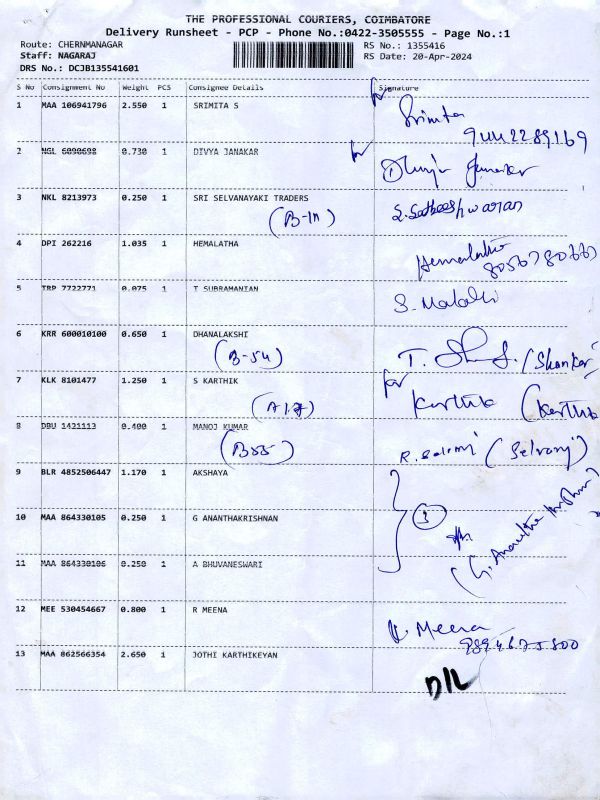 THE PROFESSIONAL COURIERS, COIMBATORE
Delivery Runsheet - PCP - Phone No.:0422-3505555 - Page No.:1
Route: CHERNMANAGAR RS No.: 1355416
Staff: NAGARAJ RS Date: 20-Apr-2024
DRS No.: DCJB135541601
S No Consignment No Weight PCS Consignee Details Signature
1 MAA 106941796 2.550 1 SRIMITA S Srimita
9442289169
2 NGL 6090698 0.730 1 DIVYA JANAKAR
3 NKL 8213973 0.250 1 SRI SELVANAYAKI TRADERS S. Satheeshwaran
(B-1A)
4 DPI 262216 1.035 1 HEMALATHA Hemalatha
8056780667
5 TRP 7722771 0.075 1 T SUBRAMANIAN S. Malathi
6 KRR 600010100 0.650 1 DHANALAKSHI T. (Shankar)
(B-54)
7 KLK 8101477 1.250 1 S KARTHIK for Karthik (Karthik
(A17)
8 DBU 1421113 0.400 1 MANOJ KUMAR R. Selvi (Selvaraj)
(B55)
9 BLR 4852506447 1.170 1 AKSHAYA
10 MAA 864330105 0.250 1 G ANANTHAKRISHNAN 3
(G. Anantha Krishnan)
11 MAA 864330106 0.250 1 A BHUVANESWARI
12 MEE 530454667 0.800 1 R MEENA Meena
9894675800
13 MAA 862566354 2.650 1 JOTHI KARTHIKEYAN
D/L